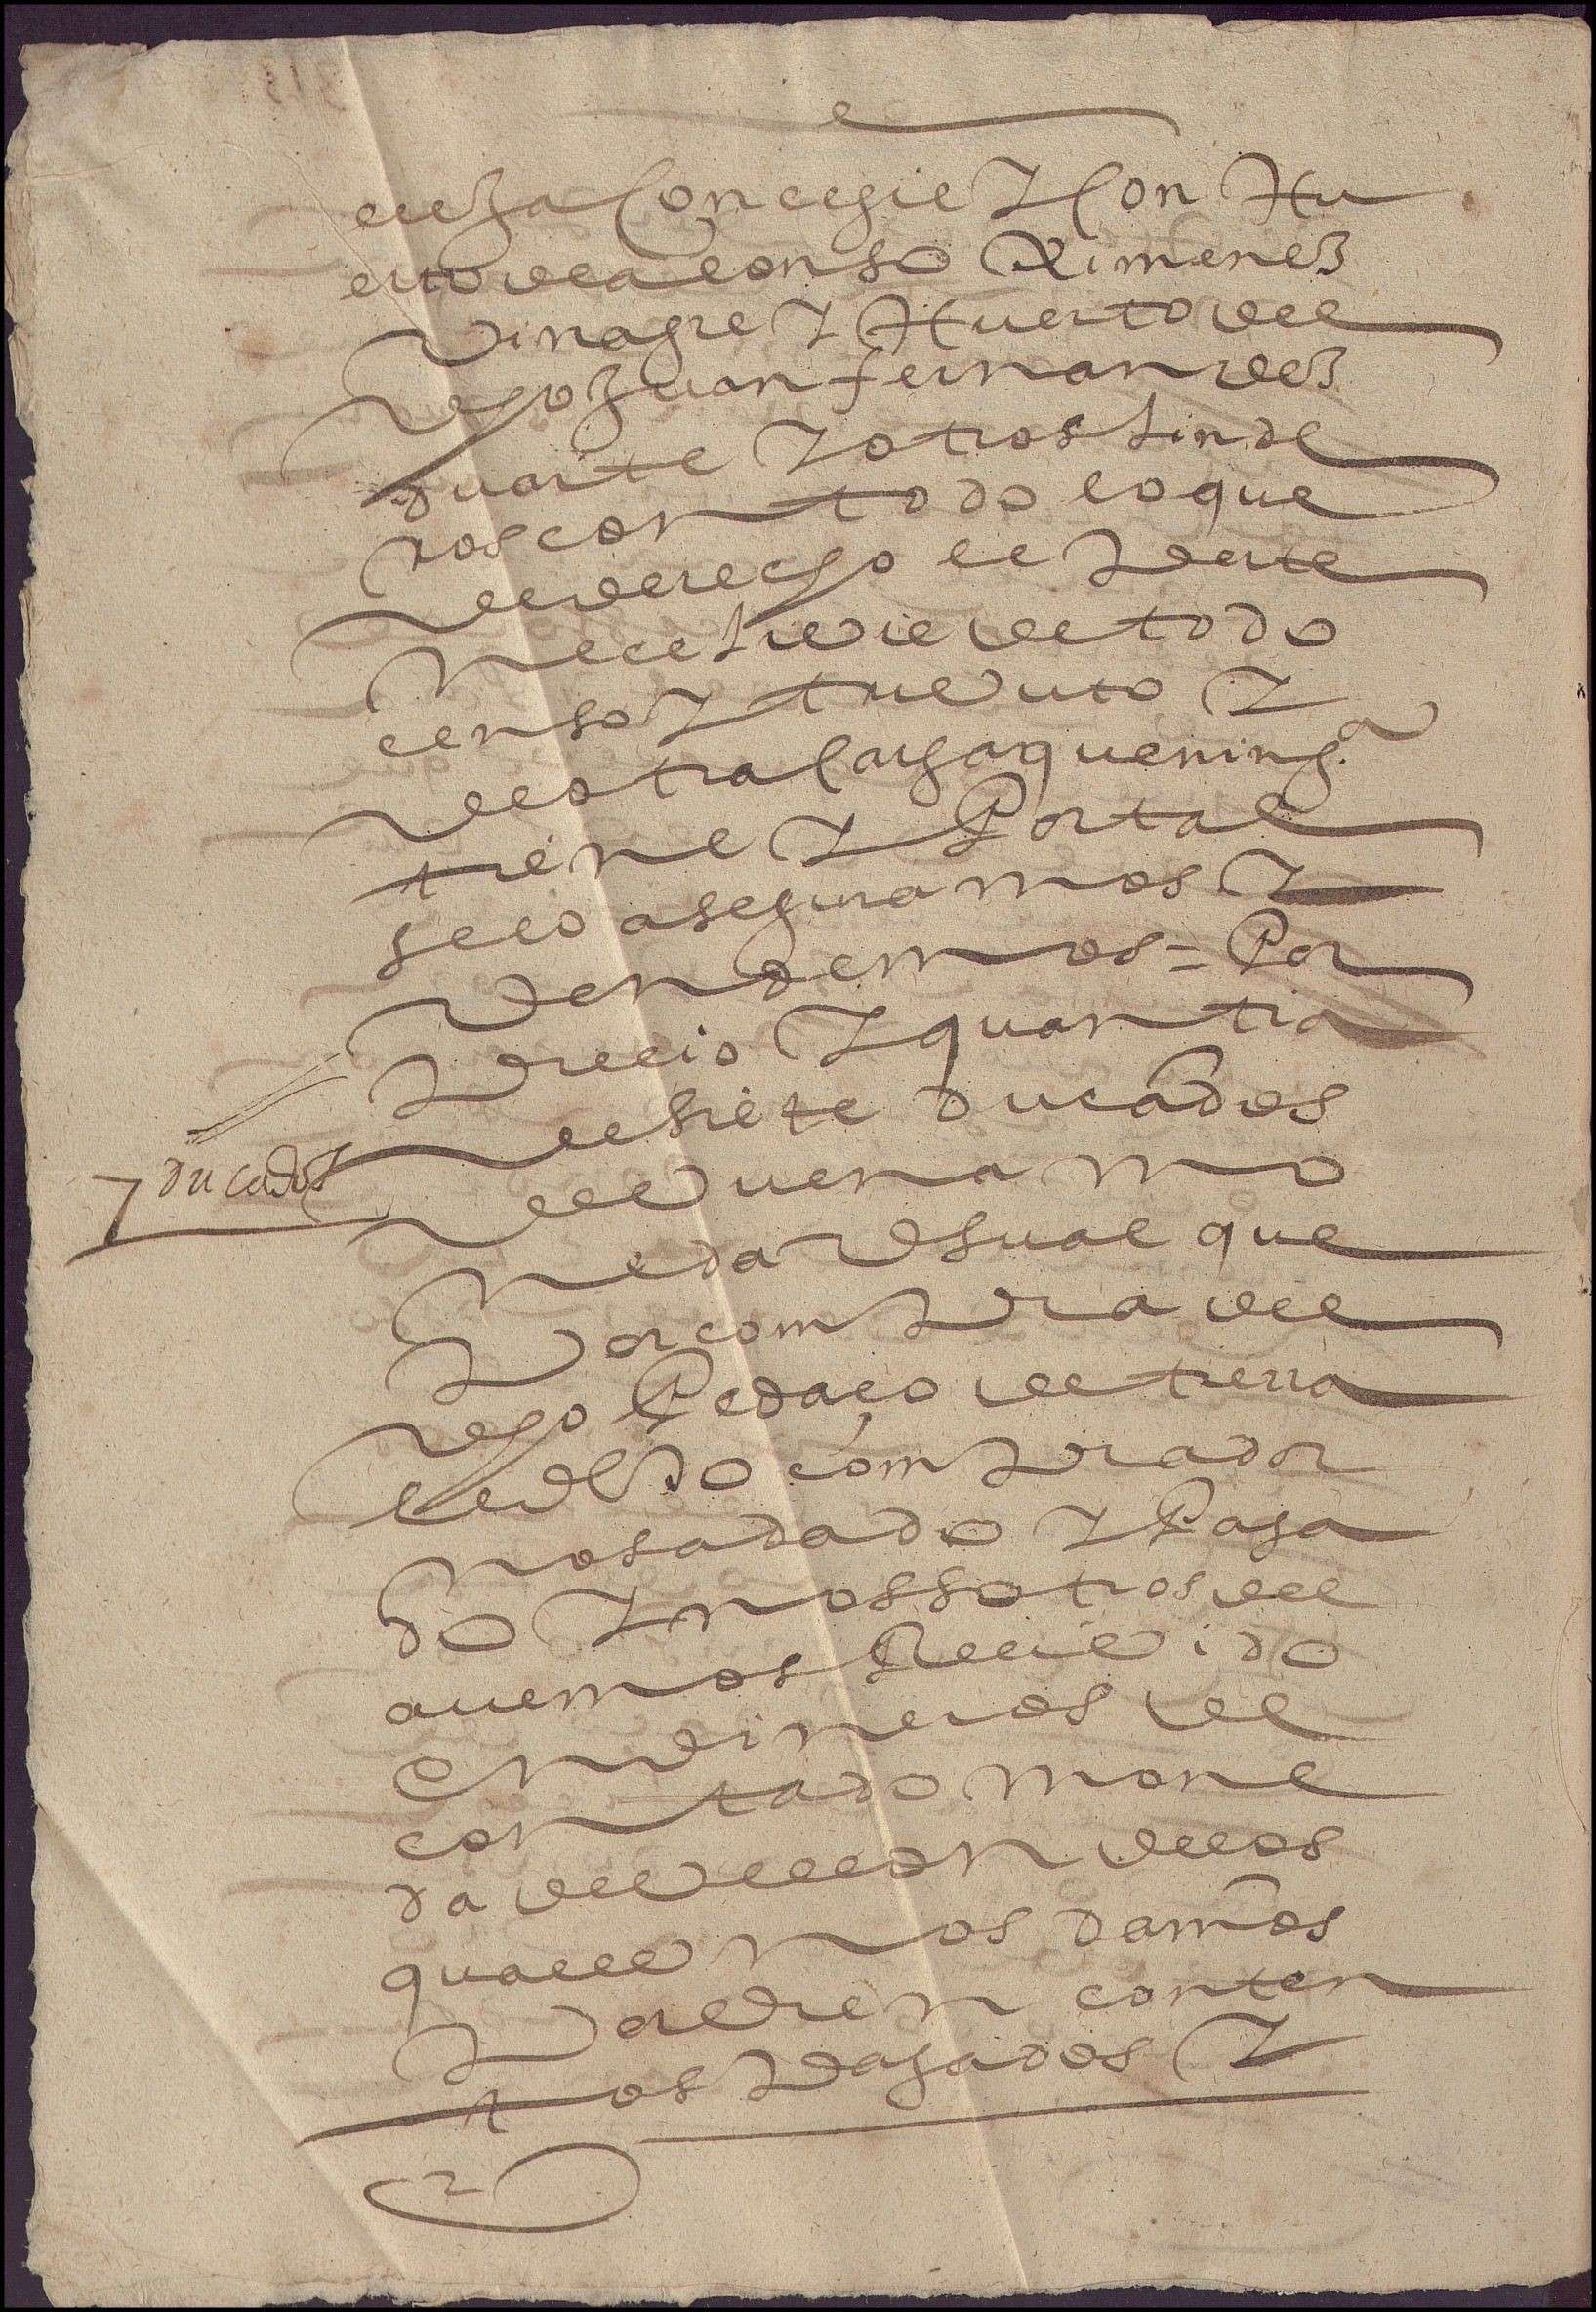 erça concegil y con hu
erto de alonso Ximenez
vinagre y Huerto del
dho Juan fernandez
duarte y otros linde
ros con todo lo que
de derecho le perte
nece libre de todo
censo y tributo y
de otra carga que ning.a
tiene y Por tal
se lo aseguramos y
vendemos = Por
precio y quantia
de siete ducados
7 ducados
de buena mo
neda usual que
Por compra del
dho Pedaço de tierra
el dho comprador
nos a dado y Paga
do y nossotros del
avemos Recibido
en dineros de
contado mone
da de vellon de los
quales nos damos
Por bien conten
tos pagados y